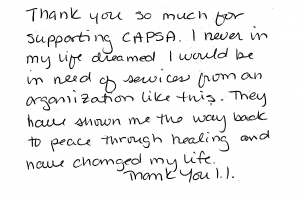 Thank you so much for
supporting CAPSA. I never in
my life dreamed I would be
in need of services from an
organization like this. They
have shown me the way back
to peace through healing and
have changed my life.
Thank You !.!.